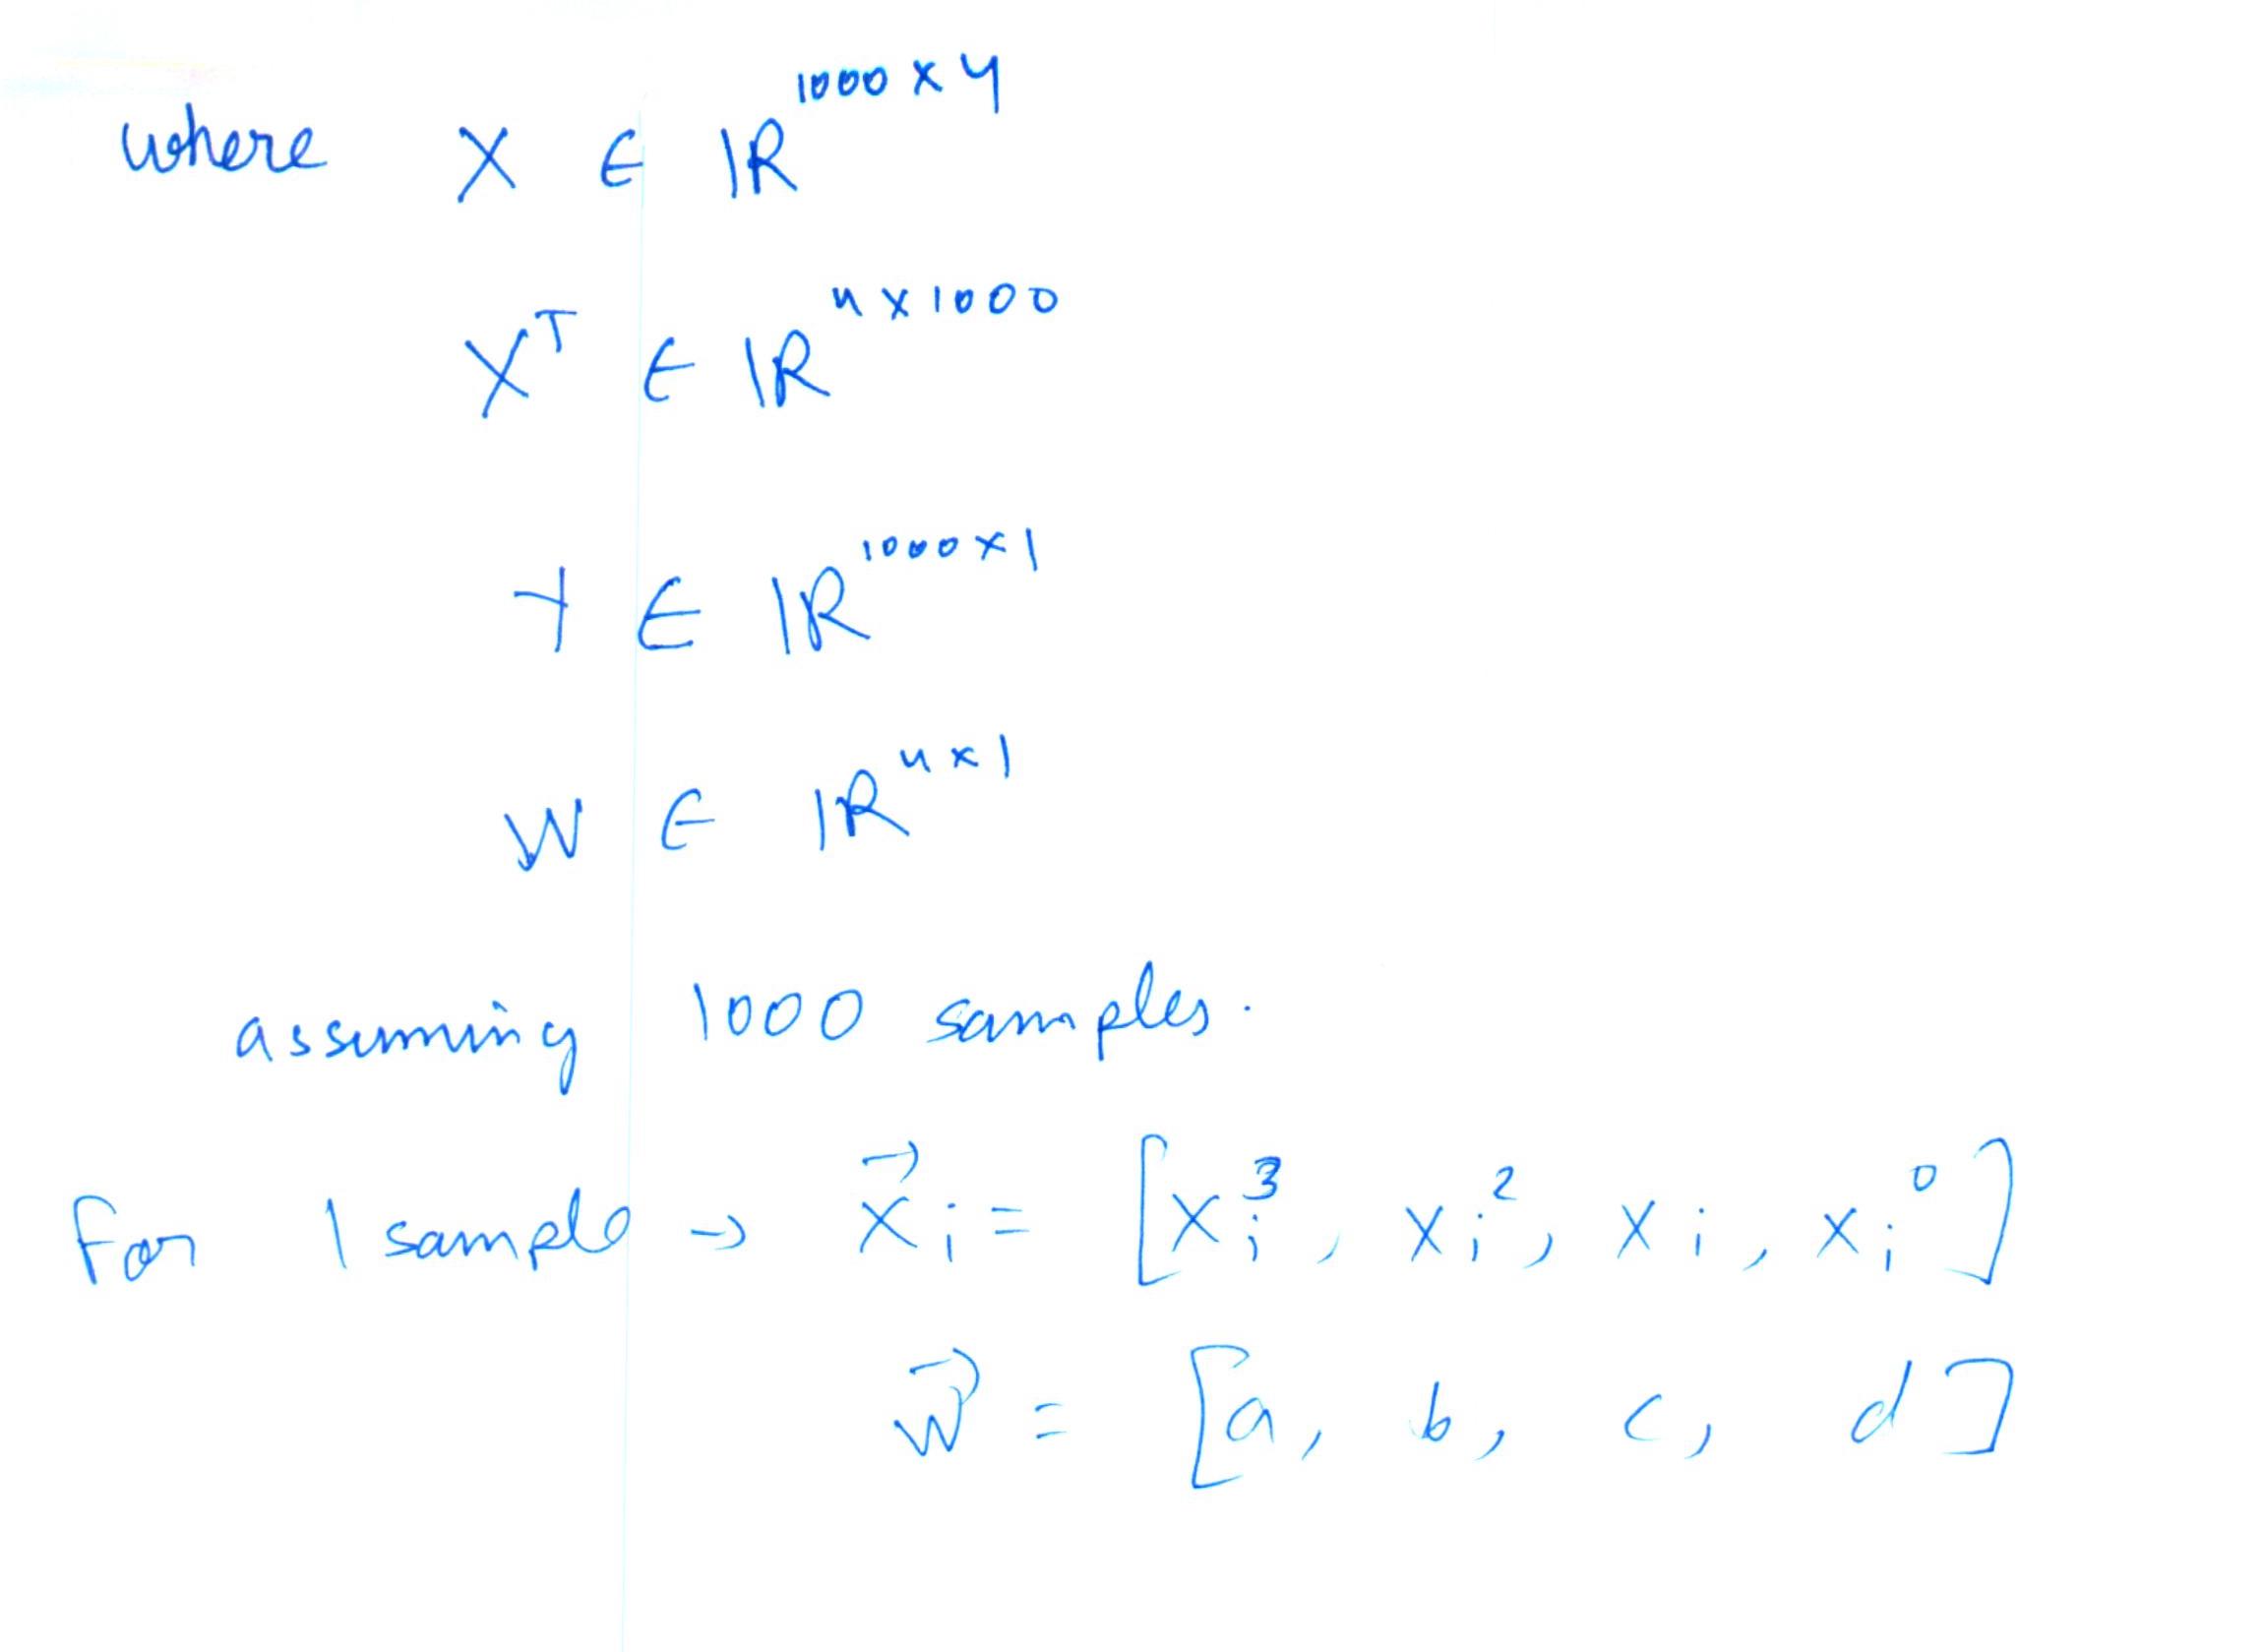 where X ∈ ℝ^{1000×4}
X^T ∈ ℝ^{4×1000}
Y ∈ ℝ^{1000×1}
W ∈ ℝ^{4×1}
assuming 1000 samples.
For 1 sample → x⃗_i = [x_i^3, x_i^2, x_i, x_i^0]
w⃗ = [a, b, c, d]